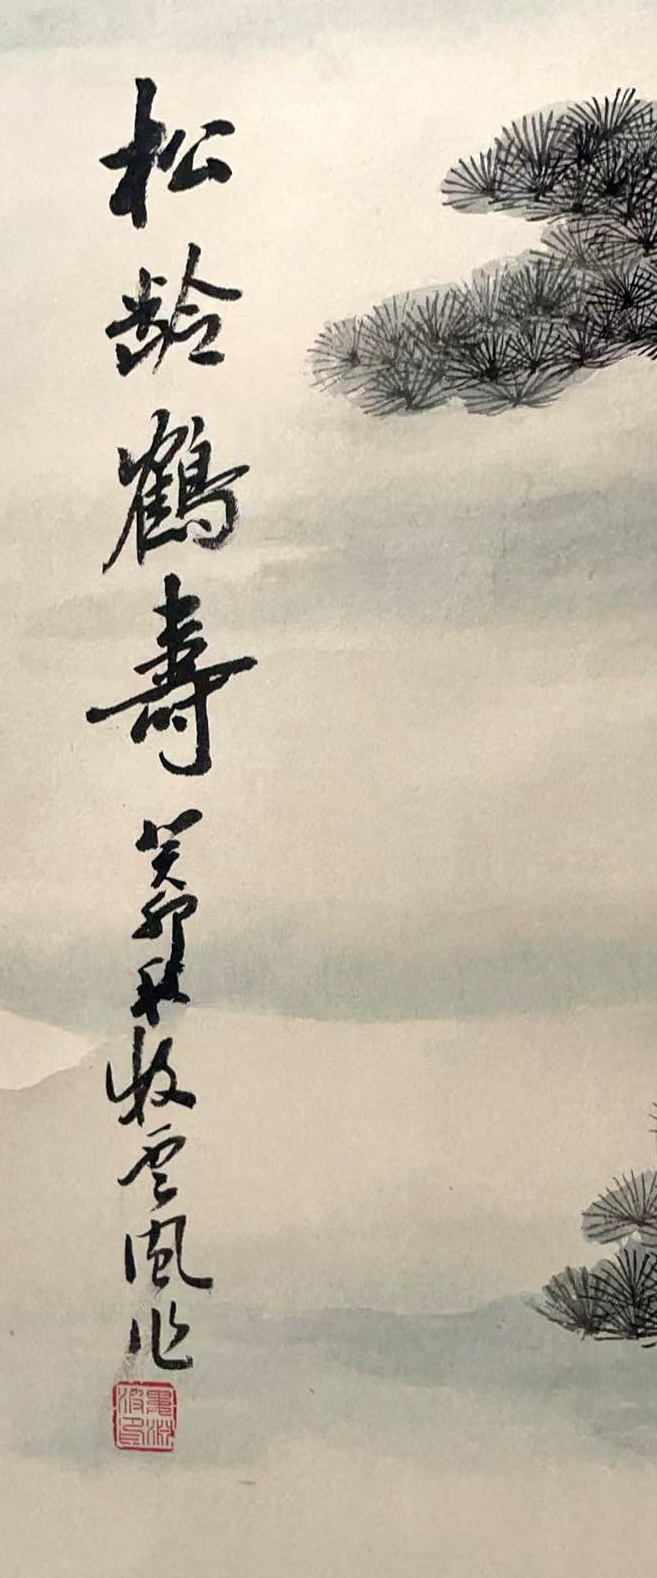 松龄鶴壽 癸卯秋牧雲風作